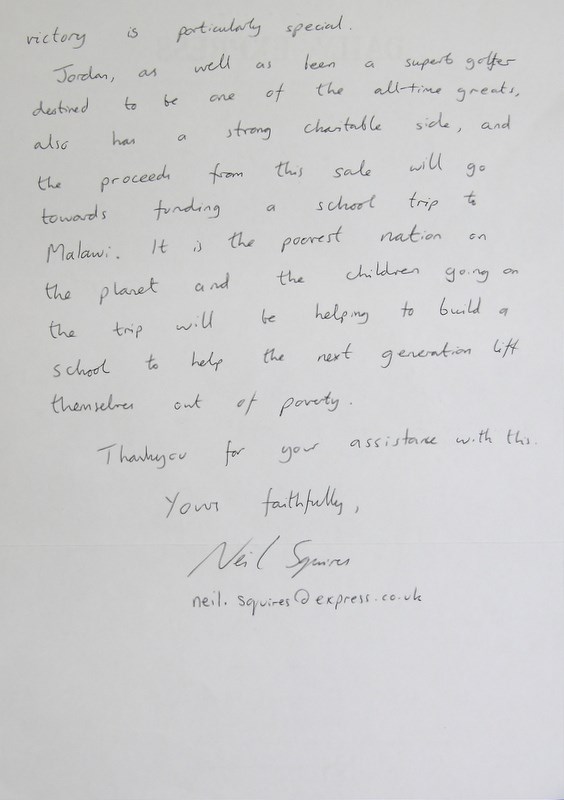 victory is particularly special.
Jordan, as well as been a superb golfer
destined to be one of the all-time greats,
also has a strong charitable side, and
the proceeds from this sale will go
towards funding a school trip to
Malawi. It is the poorest nation on
the planet and the children going on
the trip will be helping to build a
school to help the next generation lift
themselves out of poverty.
Thankyou for your assistance with this.
Yours faithfully,
Neil Squires
neil.squires@express.co.uk